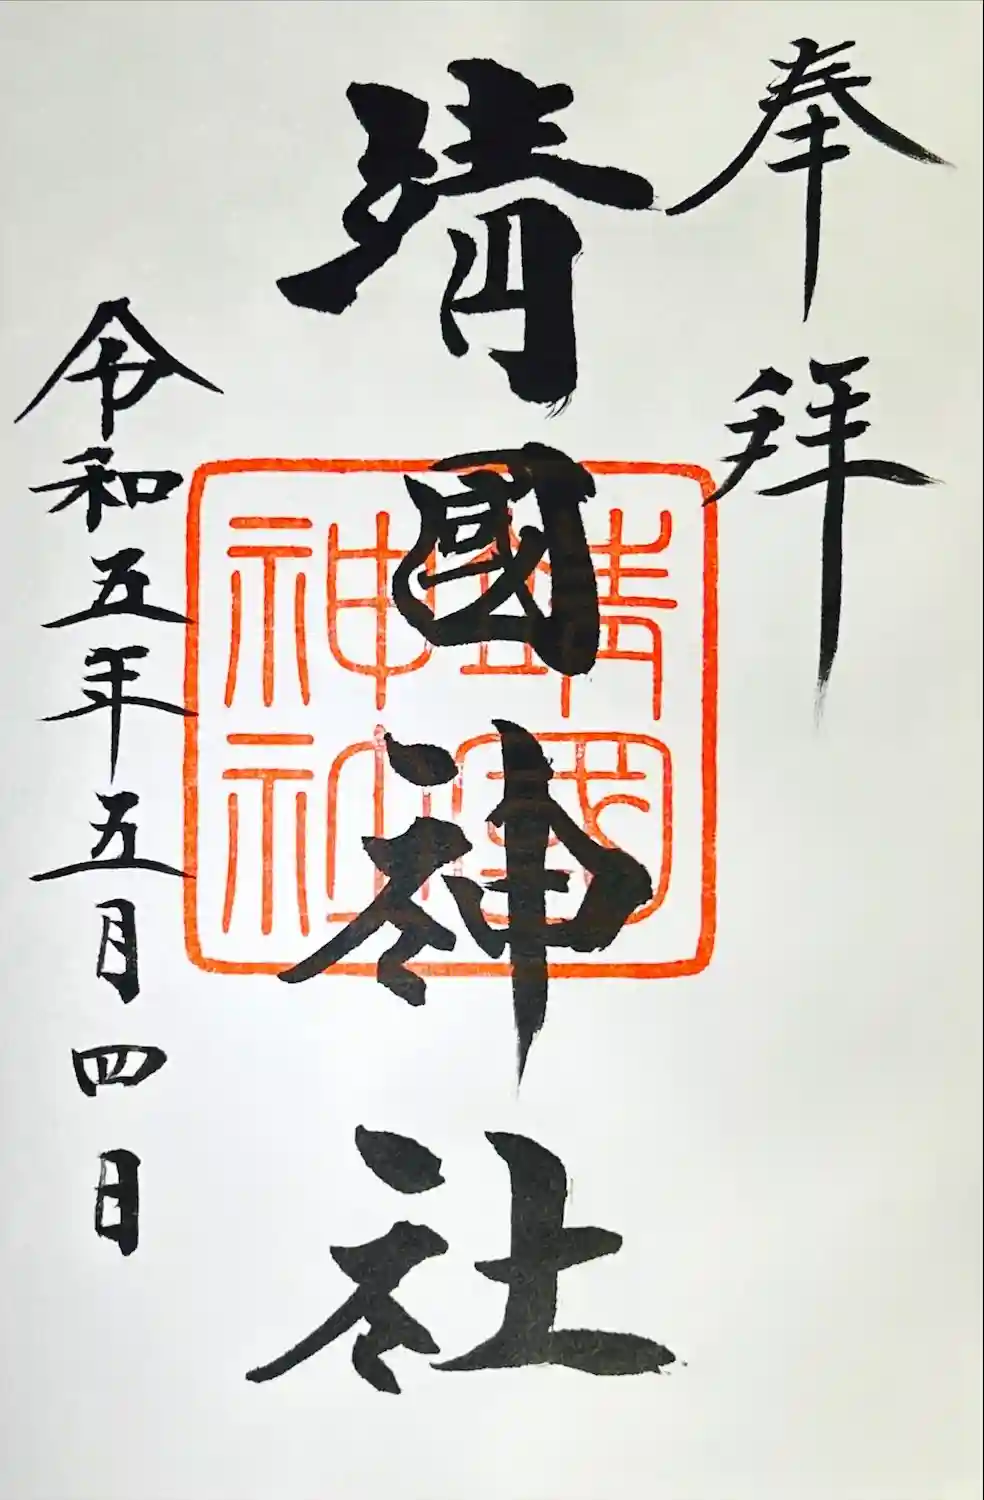 奉拜
靖國神社
靖國
神社
令和五年五月四日